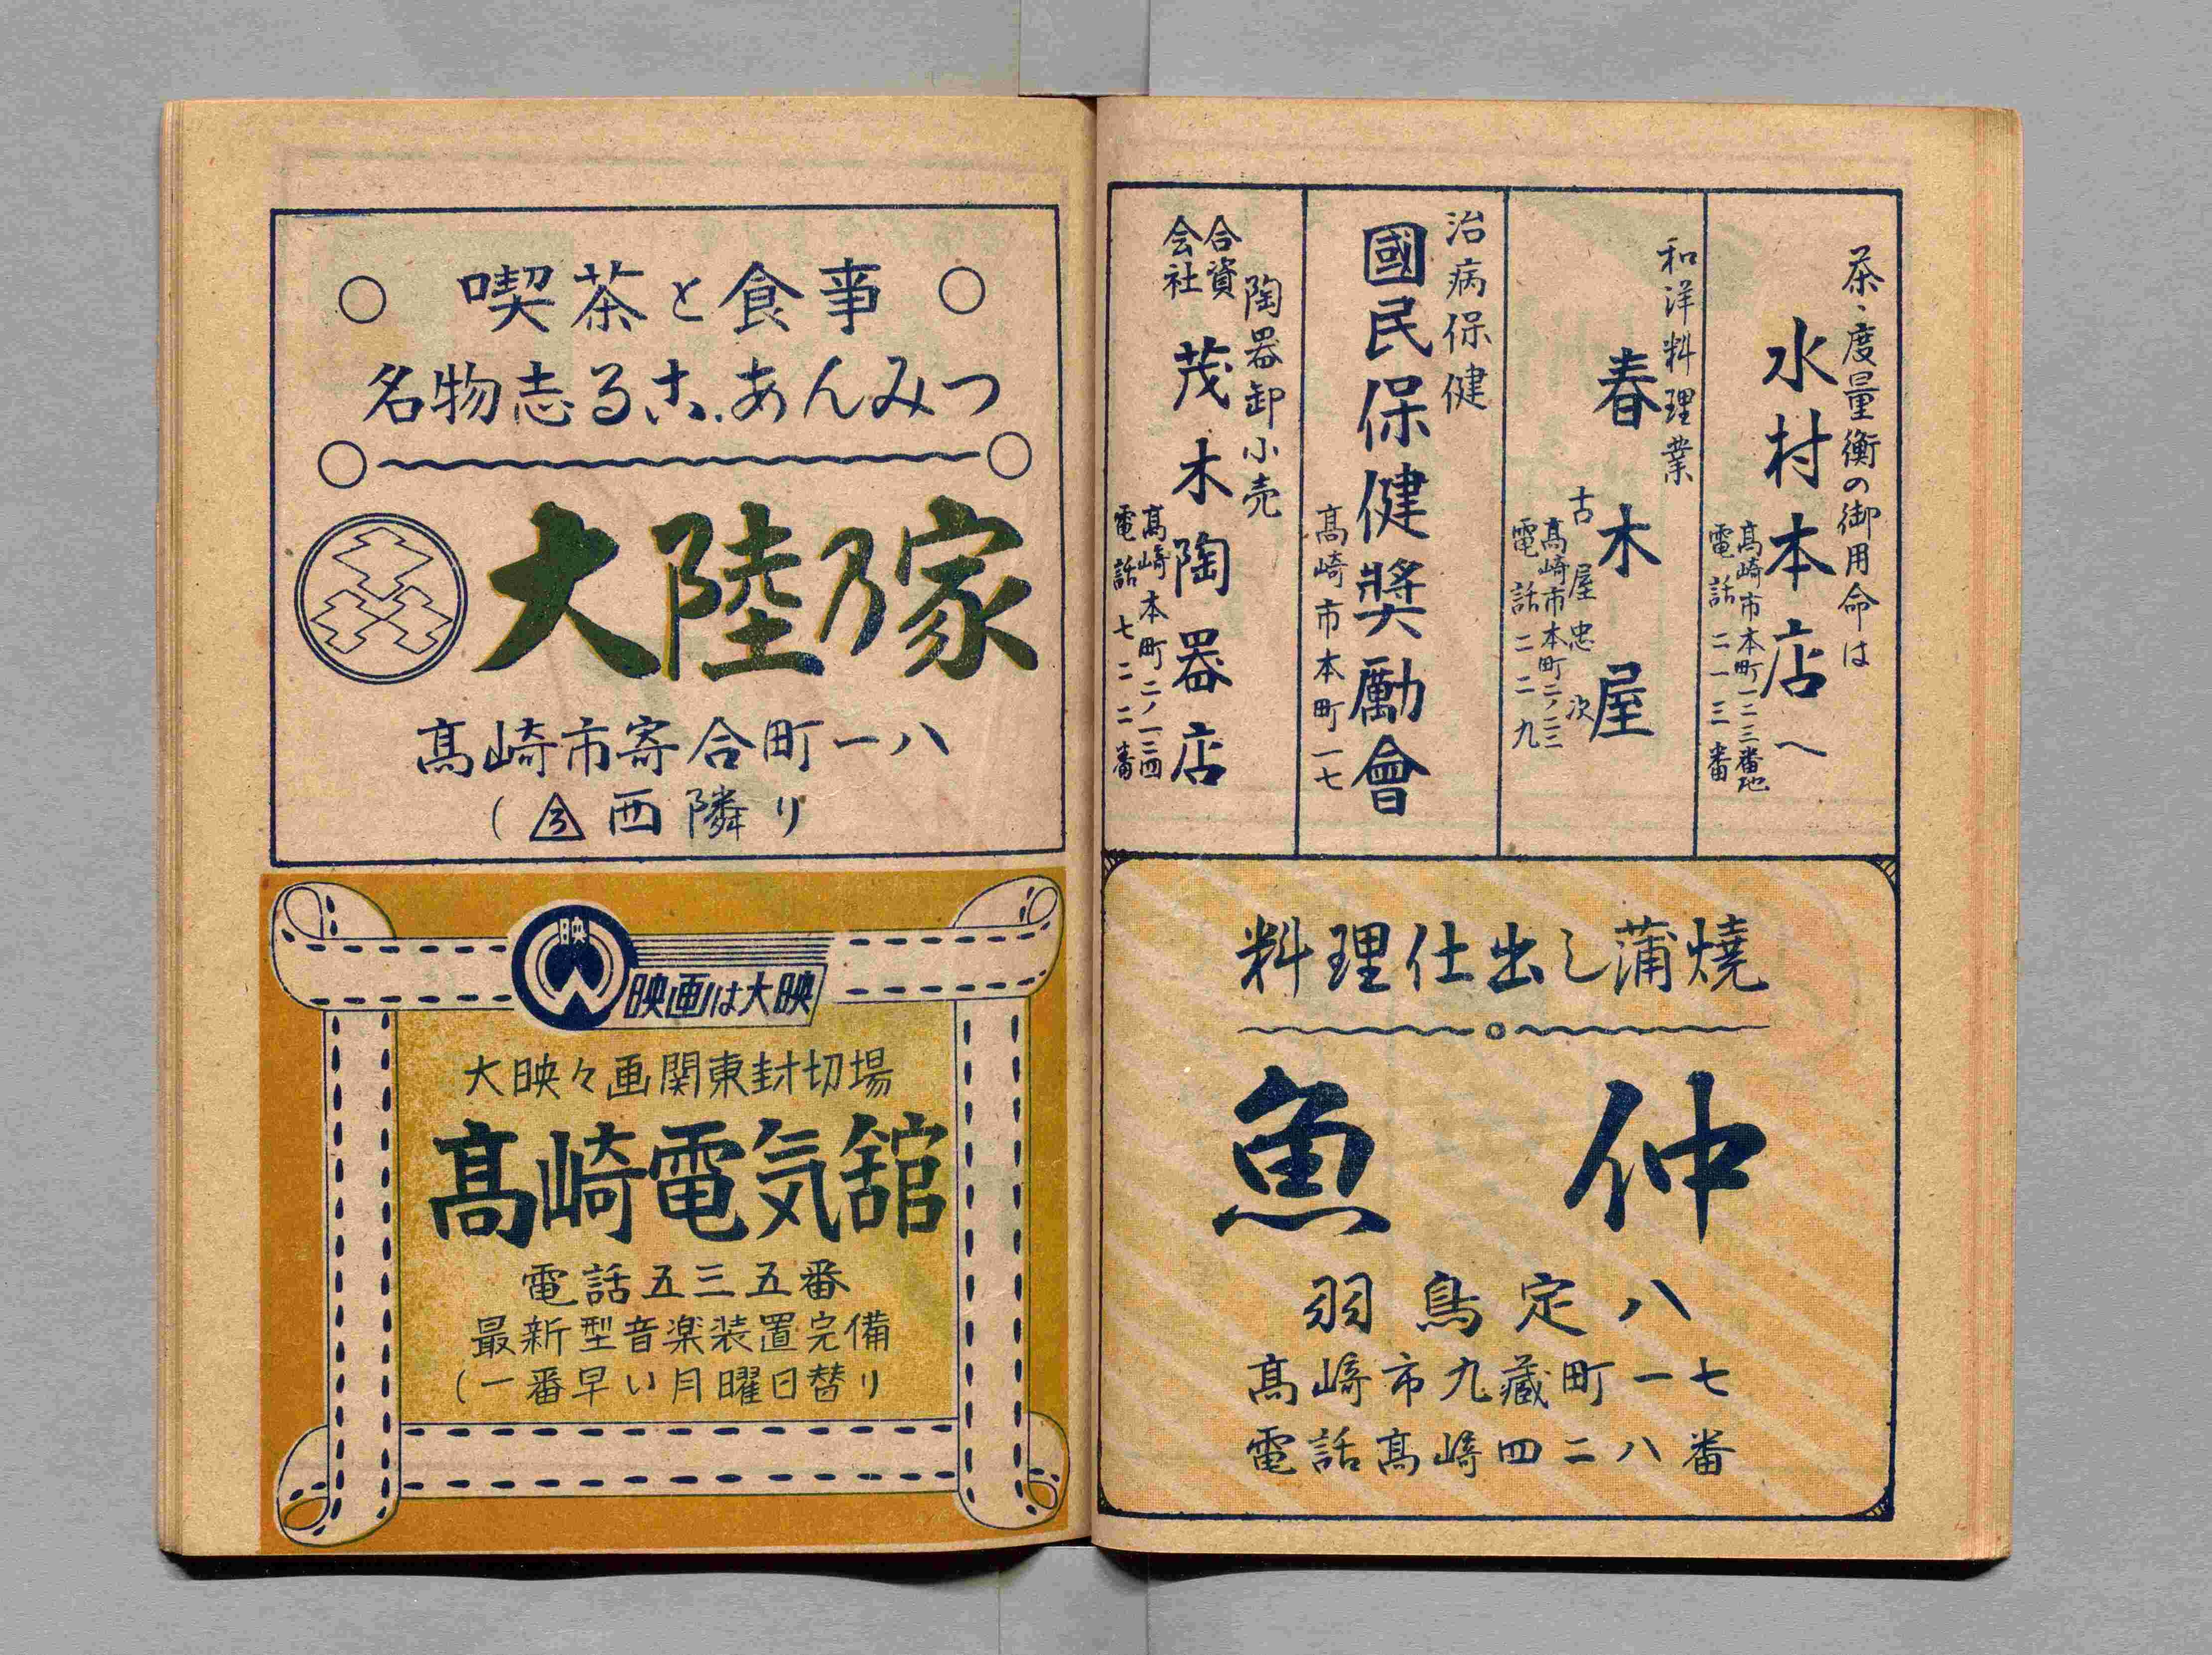 茶、度量衡の御用命は
水村本店へ
高崎市本町一二三番地
電話二一一三番
和洋料理業
春木屋
古屋忠次
高崎市本町二ノ三三
電話二二九
治病保健
國民保健奬勵會
高崎市本町一七
陶器卸小売
合資
会社
茂木陶器店
高崎本町二ノ一二四
電話七二二番
料理仕出し蒲燒
魚仲
羽鳥定八
高崎市九藏町一七
電話高崎四二八番
喫茶と食事
名物志るこ.あんみつ
大陸乃家
高崎市寄合町一八
(西隣り
映
映画は大映
大映々画関東封切場
高崎電気舘
電話五三五番
最新型音楽装置完備
(一番早い月曜日替り